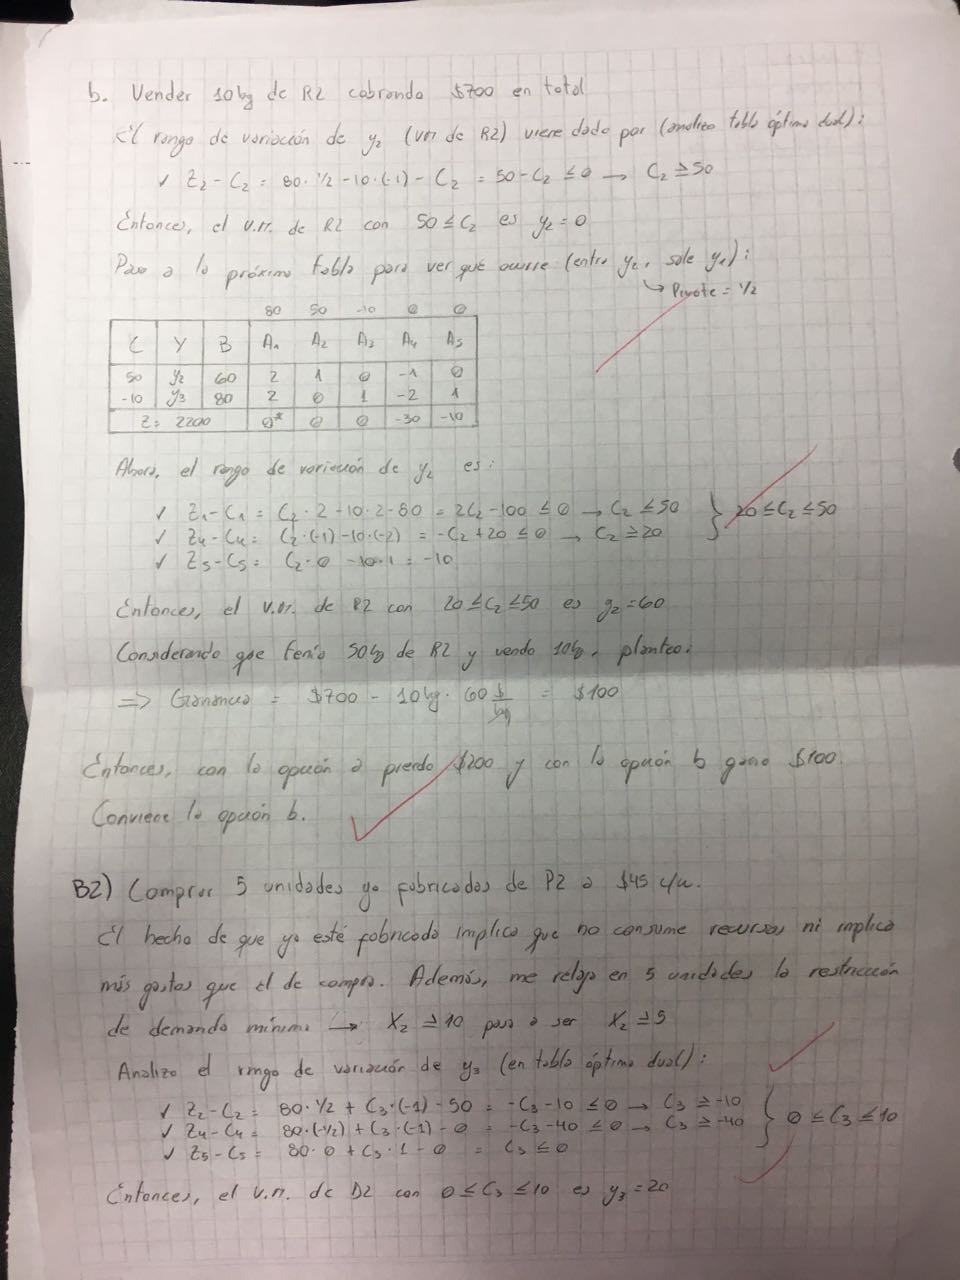 b. Vender 10kg de R2 cobrando $700 en total
El rango de variación de y₂ (vm de R2) viene dado por (analizo tabla óptima dual):
✓ Z₂-C₂ = 80·1/2 -10·(-1) - C₂ = 50-C₂ ≤ 0 → C₂ ≥ 50
Entonces, el v.m. de R2 con 50 ≤ C₂ es y₂=0
Paso a la próxima tabla para ver qué ocurre (entra y₂, sale y₁):
↳ Pivote = 1/2
80 50 -10 0 0
C Y B A₁ A₂ A₃ A₄ A₅
50 y₂ 60 2 1 0 -1 0
-10 y₃ 80 2 0 1 -2 1
Z = 2200 0* 0 0 -30 -10
Ahora, el rango de variación de y₂ es:
✓ Z₁-C₁ = C₂·2 -10·2-80 = 2C₂-100 ≤ 0 → C₂ ≤ 50
✓ Z₄-C₄ = C₂·(-1)-10·(-2) = -C₂+20 ≤ 0 → C₂ ≥ 20 } 20 ≤ C₂ ≤ 50
✓ Z₅-C₅ = C₂·0 -10·1 = -10
Entonces, el v.m. de R2 con 20 ≤ C₂ ≤ 50 es y₂=60
Considerando que tenía 50kg de R2 y vendo 10kg, planteo:
⇒ Ganancia = $700 - 10kg·60 $/kg = $100
Entonces, con la opción a pierdo $200 y con la opción b gano $100.
Conviene la opción b.
B2) Comprar 5 unidades ya fabricadas de P2 a $45 c/u.
El hecho de que ya esté fabricado implica que no consume recursos ni implica
más gastos que el de compra. Además, me relaja en 5 unidades la restricción
de demanda mínima → X₂ ≥ 10 pasa a ser X₂ ≥ 5
Analizo el rango de variación de y₃ (en tabla óptima dual):
✓ Z₂-C₂ = 80·1/2 + C₃·(-1) - 50 = -C₃-10 ≤ 0 → C₃ ≥ -10
✓ Z₄-C₄ = 80·(-1/2) + C₃·(-1) - 0 = -C₃-40 ≤ 0 → C₃ ≥ -40 } 0 ≤ C₃ ≤ 10
✓ Z₅-C₅ = 80·0 + C₃·1 - 0 = C₃ ≤ 0
Entonces, el v.m. de D2 con 0 ≤ C₃ ≤ 10 es y₃=20